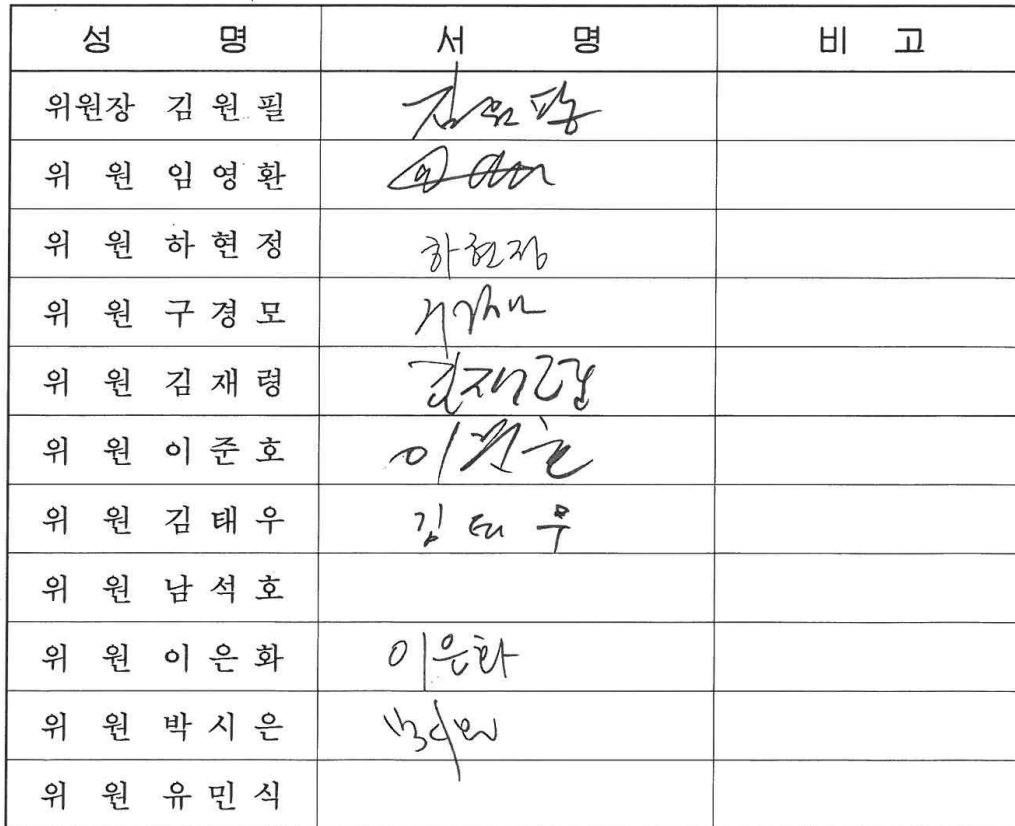 성 명 서 명 비 고
위원장 김 원 필 김원필
위 원 임 영 환
위 원 하 현 정 하현정
위 원 구 경 모
위 원 김 재 령 김재령
위 원 이 준 호 이준호
위 원 김 태 우 김태우
위 원 남 석 호
위 원 이 은 화 이은화
위 원 박 시 은
위 원 유 민 식